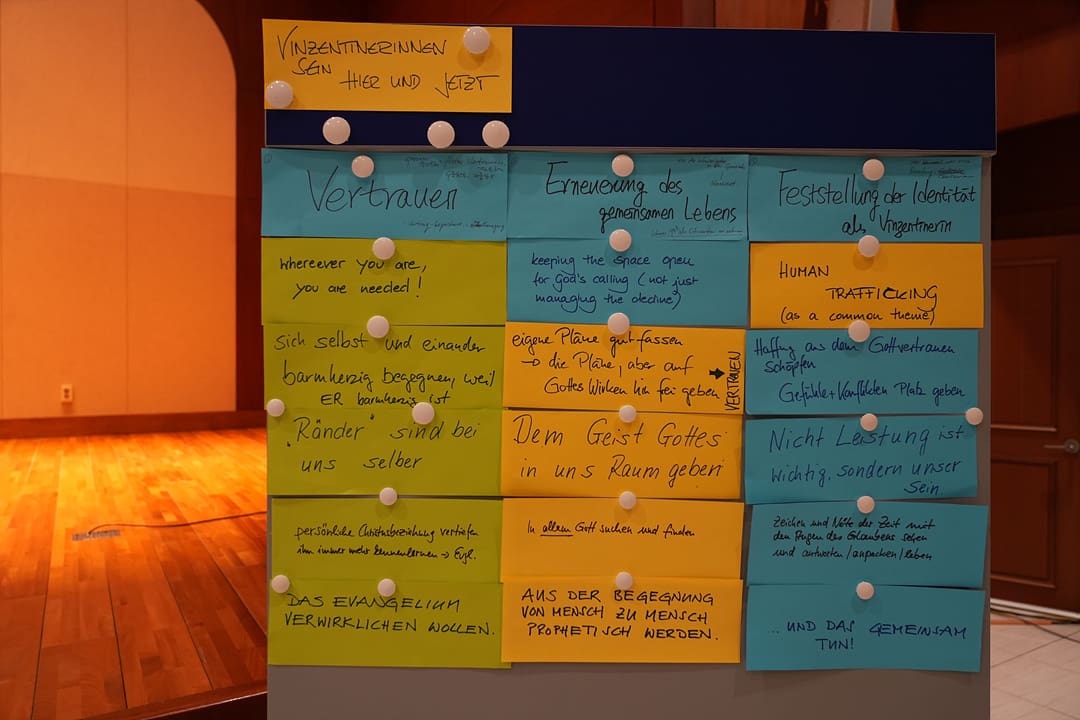 VINZENTINERINNEN
SEIN HIER UND JETZT
Vertrauen
Erneuerung des
gemeinsamen Lebens
Feststellung der Identität
als Vinzentinerin
whereever you are,
you are needed!
keeping the space open
for God's calling (not just
managing the decline)
HUMAN
TRAFFICKING
(as a common theme)
sich selbst und einander
barmherzig begegnen, weil
ER barmherzig ist
eigene Pläne gut fassen
→ die Pläne, aber auf
Gottes Wirken hin frei geben
→ VERTRAUEN
Hoffng aus dem Gottvertrauen
schöpfen
Gefühle + Konflikten Platz geben
"Ränder" sind bei
uns selber
Dem Geist Gottes
in uns Raum geben
Nicht Leistung ist
wichtig, sondern unser
Sein.
persönliche Christusbeziehung vertiefen
ihn immer mehr kennenlernen → Evgl.
In allem Gott suchen und finden
Zeichen und Nöte der Zeit mit
den Augen des Glaubens sehen
und antworten/anpacken/leben
DAS EVANGELIUM
VERWIRKLICHEN WOLLEN.
AUS DER BEGEGNUNG
VON MENSCH ZU MENSCH
PROPHETISCH WERDEN.
...UND DAS GEMEINSAM
TUN!